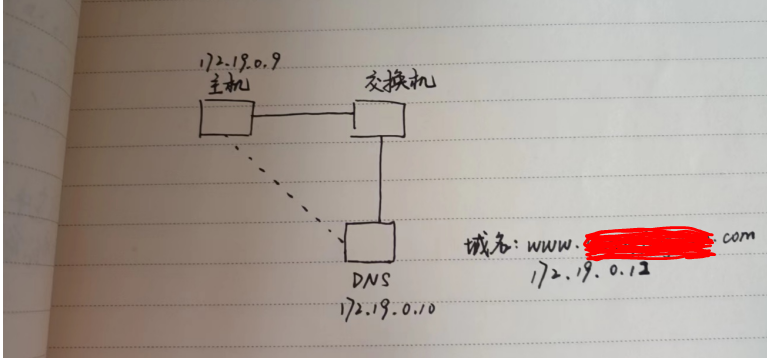 172.19.0.9
主机
交换机
DNS
172.19.0.10
域名: www. .com
172.19.0.12